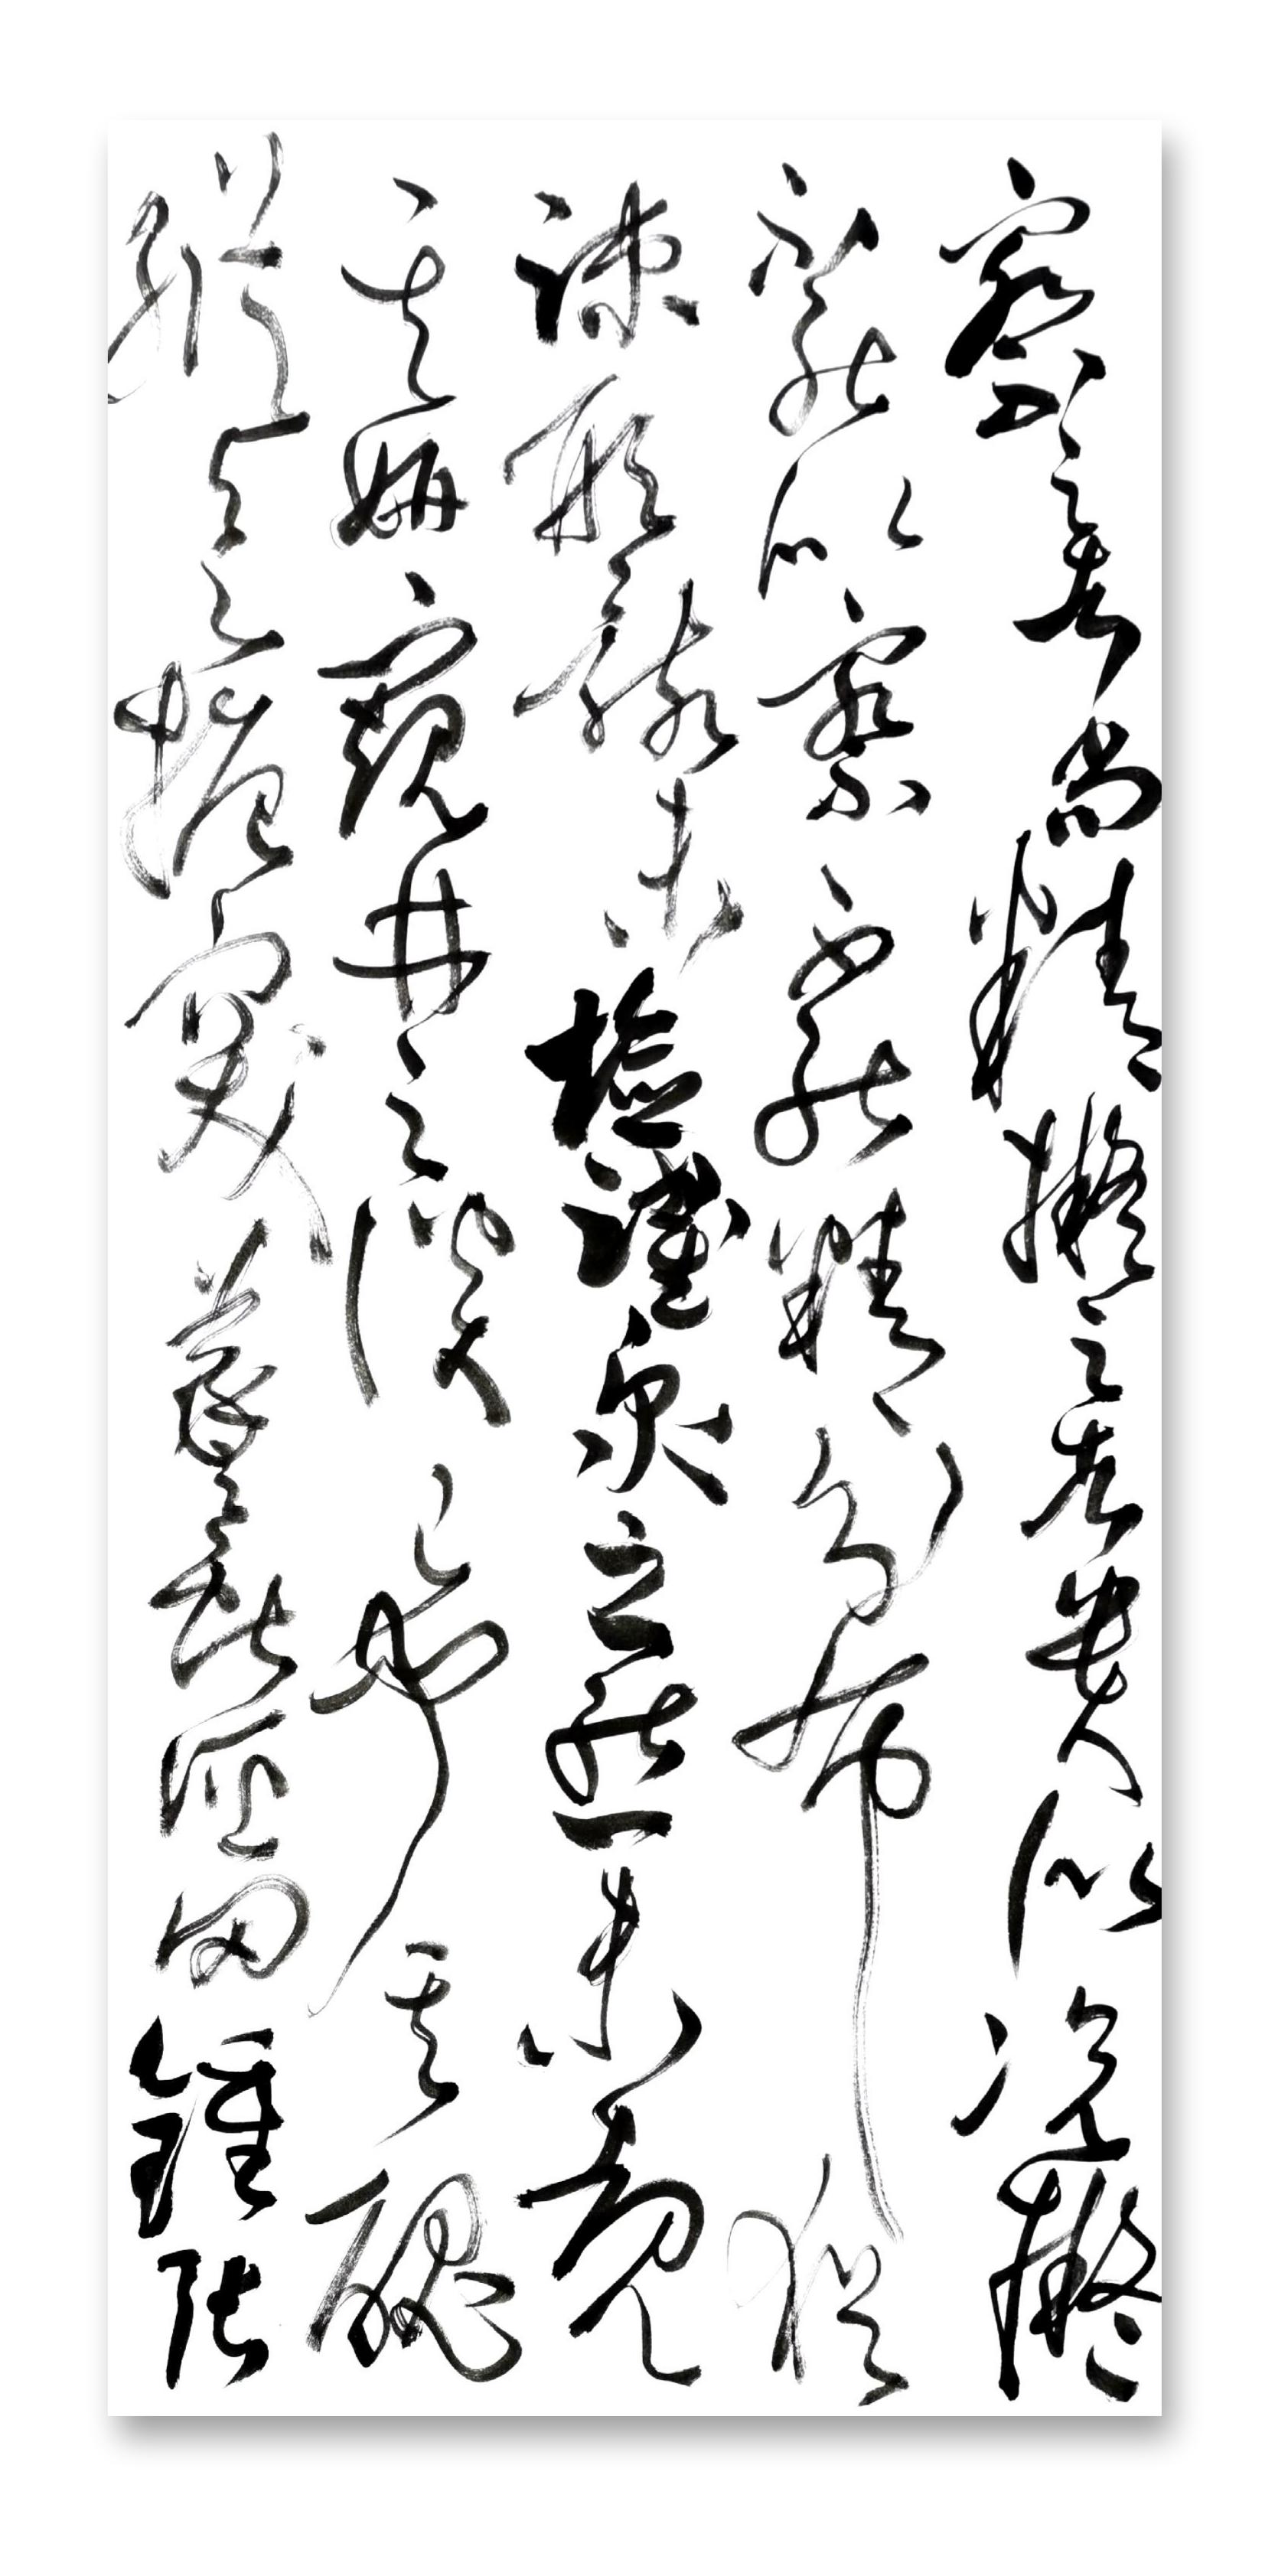 察之者尚精擬之者貴似況擬
不能似察不能精分布猶
疎形骸未檢躍泉之態未覩
其妍窺井之談已聞其醜
縱欲搪突羲獻誣罔鍾張